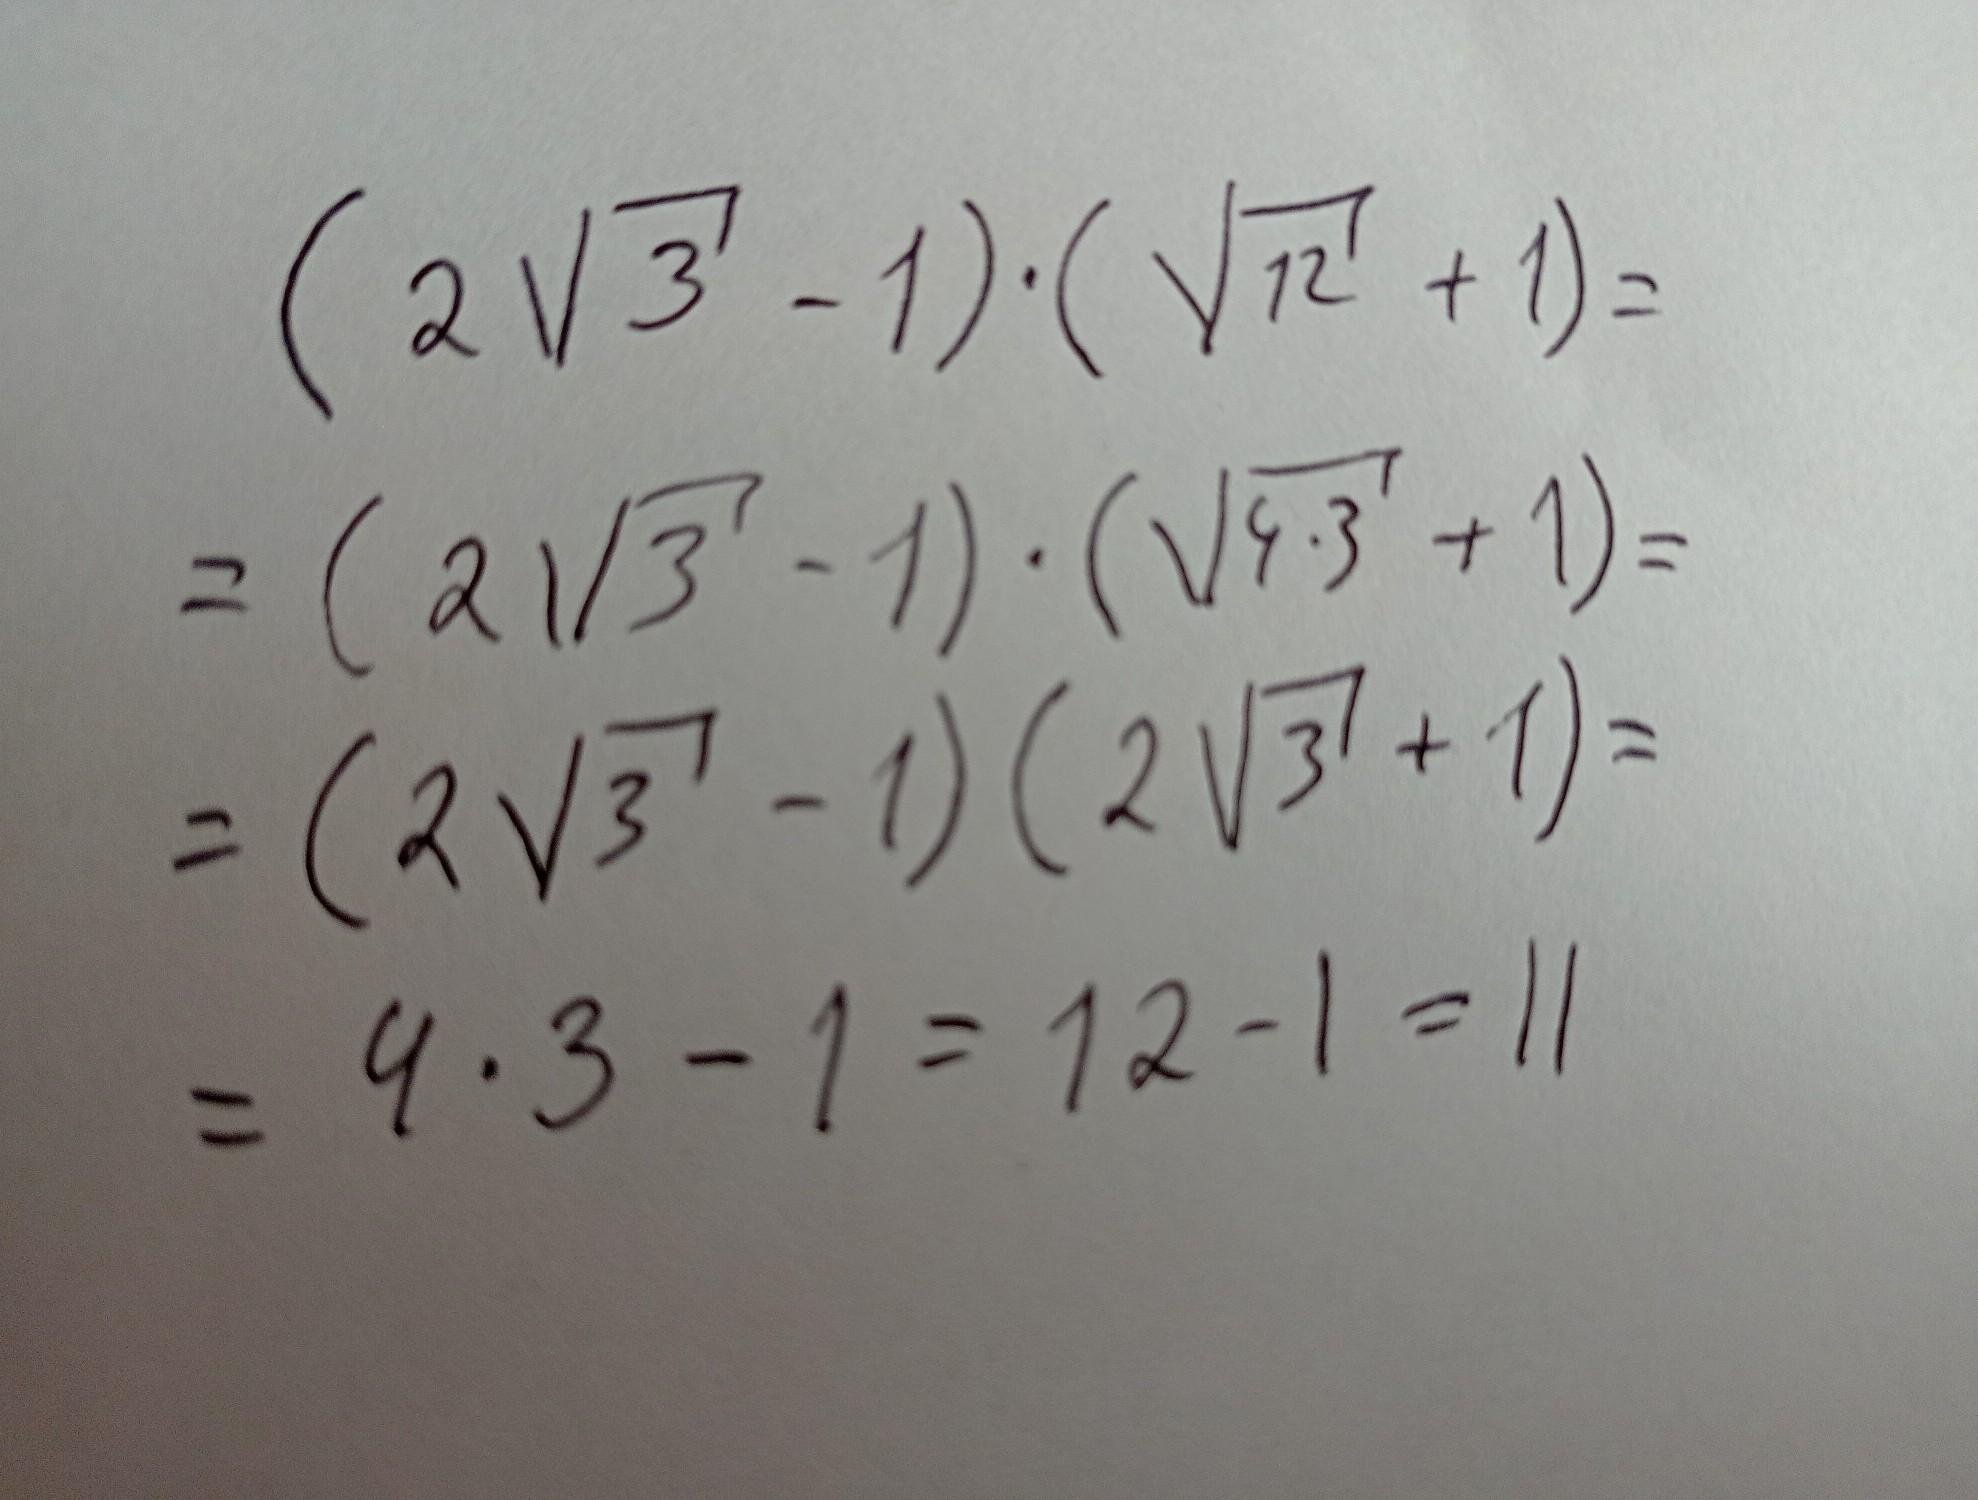 (2√3 - 1)·(√12 + 1) =
= (2√3 - 1)·(√4·3 + 1) =
= (2√3 - 1)(2√3 + 1) =
= 4·3 - 1 = 12 - 1 = 11